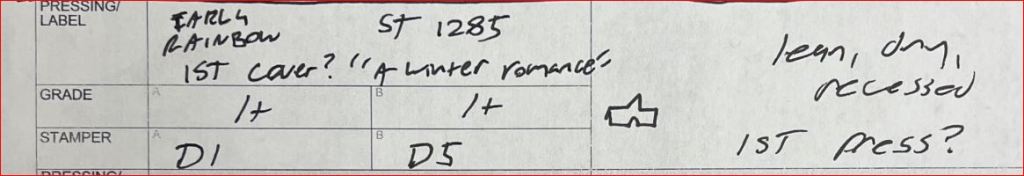 PRESSING/
LABEL
EARLY
RAINBOW
ST 1285
1ST cover? "A winter romance"
lean, dry,
recessed
GRADE
A
1+
B
1+
STAMPER
A
D1
B
D5
1ST press?
PRESSING/